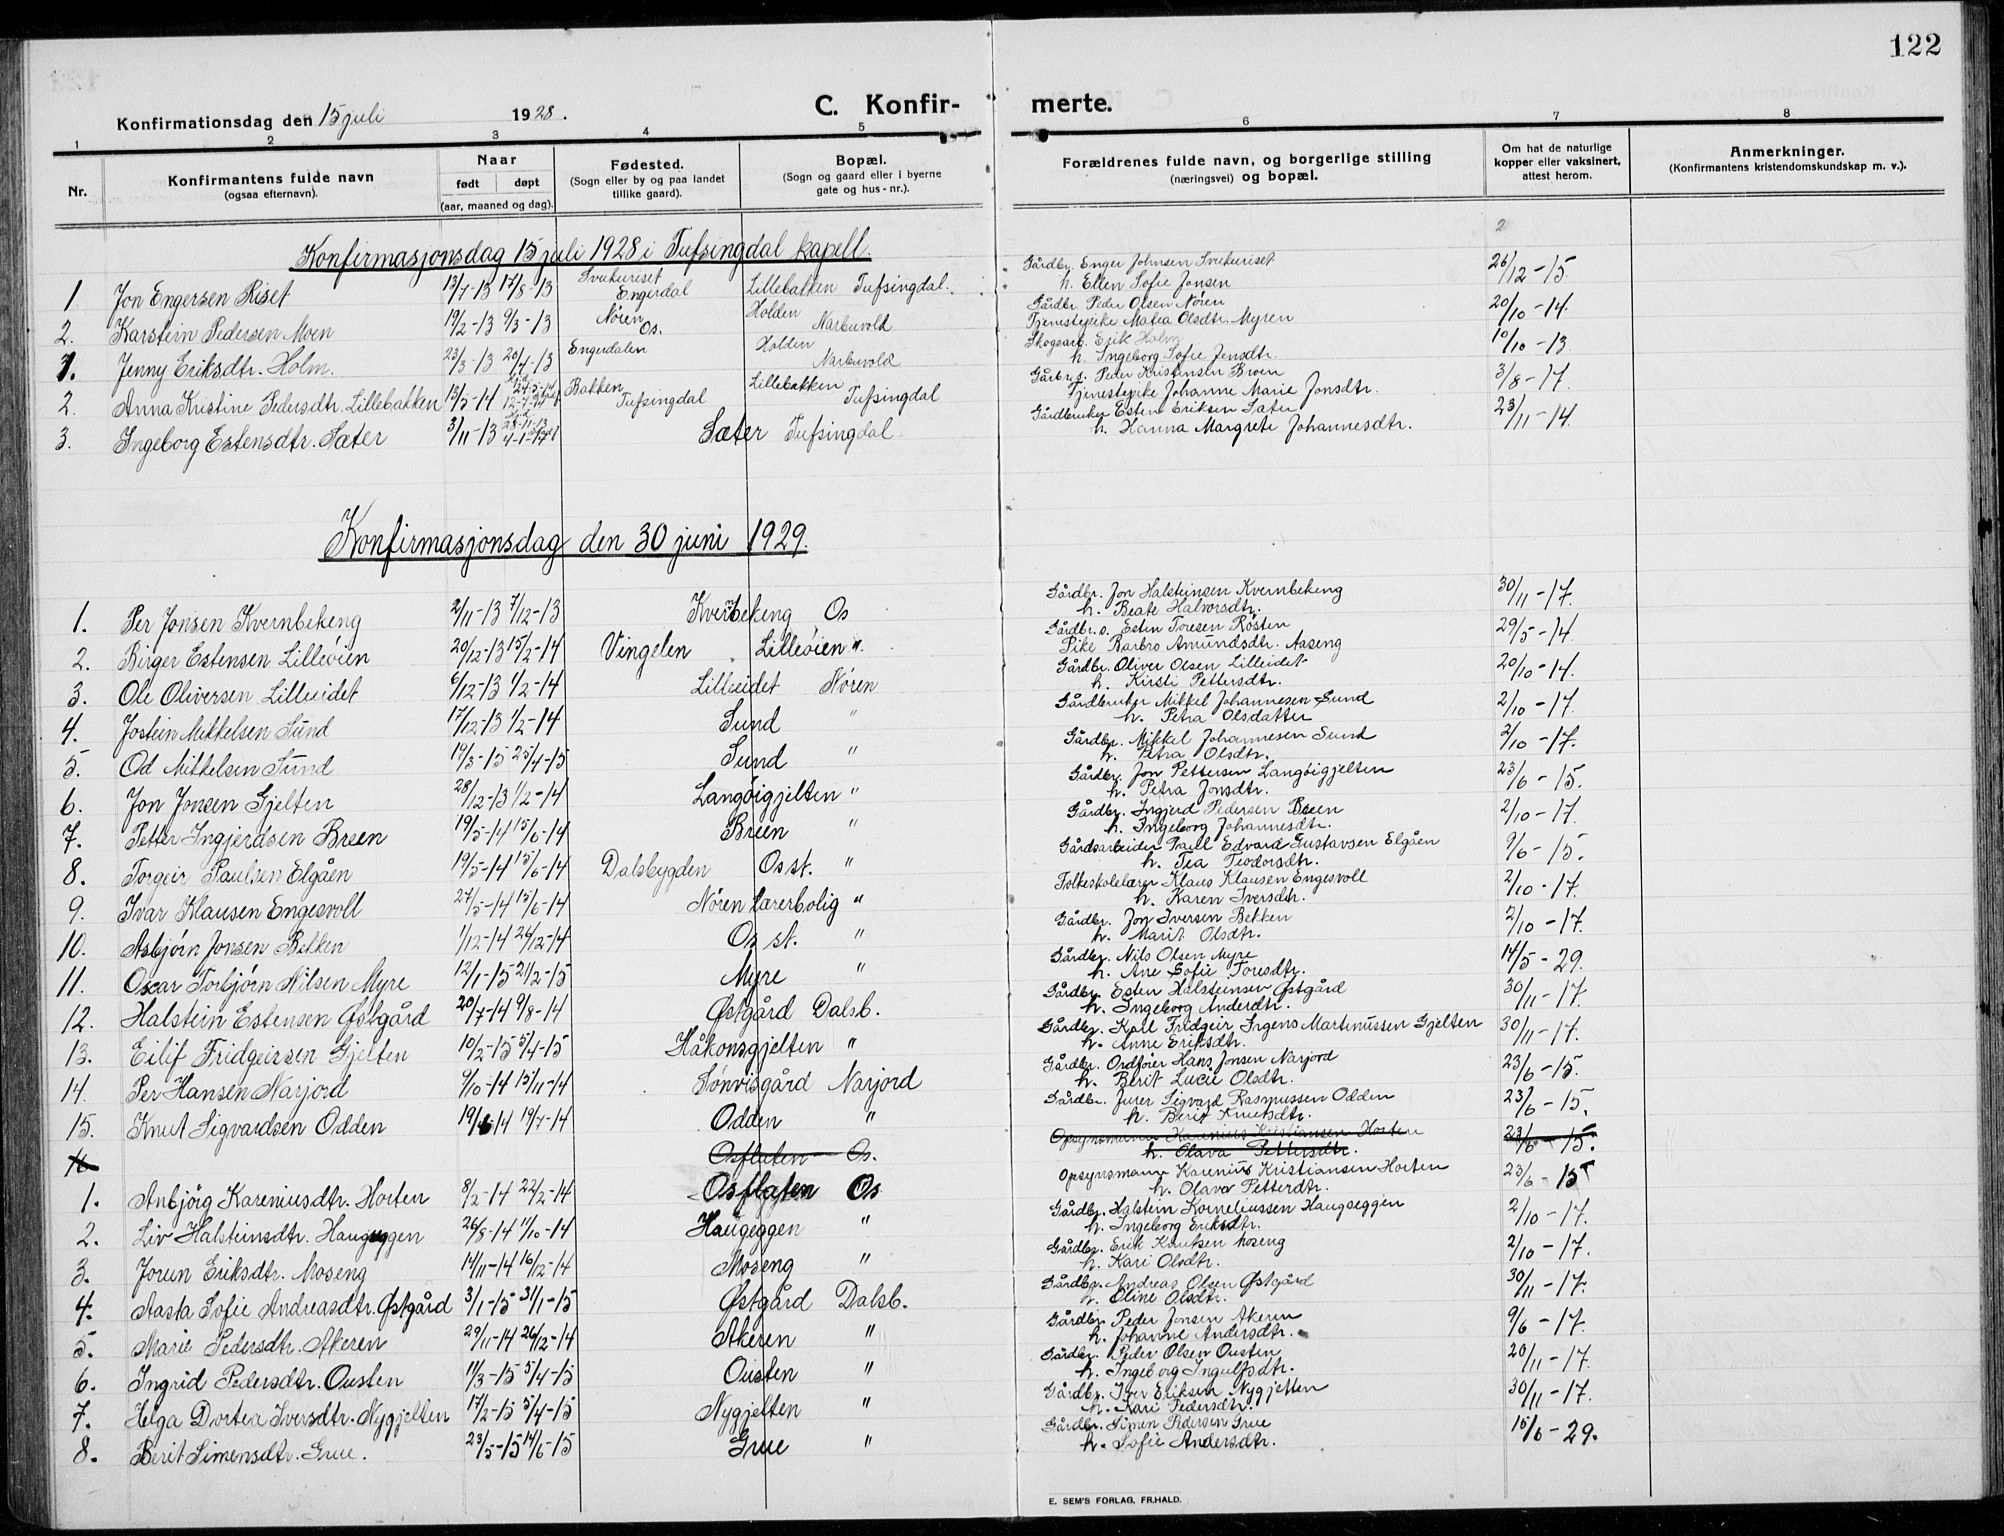 122
Konfirmationsdag den 15 juli 1928. C. Konfirmerte.
1 2 3 4 5 6 7 8
Nr. Konfirmantens fulde navn (ogsaa efternavn). Naar født døpt (aar, maaned og dag). Fødested. (Sogn eller by og paa landet tillike gaard). Bopæl. (Sogn og gaard eller i byerne gate og hus-nr.). Forældrenes fulde navn, og borgerlige stilling (næringsvei) og bopæl. Om hat de naturlige kopper eller vaksinert, attest herom. Anmerkninger. (Konfirmantens kristendomskundskap m. v.).
Konfirmasjonsdag 15 juli 1928 i Tufsingdal kapell.
1 Jon Engersen Riset 13/7-13 17/8-13 Svukuriset Engerdal Lillebakken Tufsingdal. Gårdbr. Enger Johnsen Svukuriset h. Ellen Sofie Jonsen 26/12-15
2. Karstein Pedersen Moen 19/2-13 9/3-13 Nören Os. Holden Narbuvold Gårdbr. Peder Olsen Nören Tjenestepike Matea Olsdtr. Myren 20/10-14.
1. Jenny Eriksdtr. Holm. 23/3-13 20/4-13 Engerdalen Holden Narbuvold Skogsarb. Erik Holm h. Ingeborg Sofie Jensdtr. 10/10-13
2. Anna Kristine Pedersdtr. Lillebakken 13/5-14 24-5-14 Bakken Tufsingdal Lillebakken Tufsingdal Gårbr. s. Peder Kristensen Broen Tjenestepike Johanne Marie Jonsdtr. 3/8-17.
3. Ingeborg Estensdtr. Sæter 3/11-13 28-11-13 Sæter Tufsingdal Gårdbruker Esten Eriksen Sæter h. Hanna Margrete Johannesdtr. 23/11-14.
Konfirmasjonsdag den 30 juni 1929.
1. Per Jonsen Kvernbekeng 2/11-13 7/12-13 Kvernbekeng Os Gårdbr. Jon Halsteinsen Kvernbekeng h. Beate Halvorsdtr. 30/11-17.
2. Birger Estensen Lilleöien 20/12-13 15/2-14 Vingelen Lilleöien " Gårdbr. s. Esten Toresen Rösten Pike Barbro Amundsdtr. Aaseng 29/5-14
3. Ole Oliversen Lilleeidet 6/12-13 1/2-14 Lilleeidet Nören Gårdbr. Oliver Olsen Lilleidet h. Kirsti Pettersdtr. 20/10-14.
4. Jostein Mikkelsen Sund 17/12-13 1/2-14 Sund " Gårdbruker Mikkel Johannesen Sund h. Petra Olsdatter 2/10-17.
5. Od Mikkelsen Sund 19/3-15 25/4-15 Sund " Gårdbr. Mikkel Johannesen Sund h. Petra Olsdtr. 2/10-17.
6. Jon Jonsen Gjelten 28/12-13 1/2-14 Langöigjelten " Gårdbr. Jon Pettersen Langöigjelten h. Petra Jonsdtr. 23/6-15.
7. Petter Ingjerdsen Breen 19/5-14 15/6-14 Breen " Gårdbr. Ingjerd Pedersen Breen h. Ingeborg Johannesdtr. 2/10-17.
8. Torgeir Paulsen Elgåen 19/5-14 15/6-14 Dalsbygden Os st. " Gårdsarbeider Paul Edvard Gustavsen Elgåen h. Tea Teodorsdtr. 9/6-15.
9. Ivar Klausen Engesvoll 27/5-14 15/6-14 Nören lærerbolig " Folkeskolelærer Klaus Klausen Engesvoll h. Karen Iversdtr. 2/10-17.
10. Asbjörn Jonsen Bekken 1/12-14 26/12-14 Os st. " Gårdbr. Jon Iversen Bekken h. Marit Olsdtr. 2/10-17.
11. Oscar Torbjörn Nilsen Myre 12/1-15 21/2-15 Myre " Gårdbr. Nils Olsen Myre h. Ane Sofie Toresdtr. 14/5-29.
12. Halstein Estensen Østgård 20/7-14 9/8-14 Østgård Dalsb. Gårdbr. Esten Halsteinsen Østgård h. Ingeborg Anderdtr. 30/11-17.
13. Eilif Fridgeirsen Gjelten 10/2-15 5/4-15 Håkonsgjelten " Gårdbr. Karl Fridgeir Ingens Martinussen Gjelten h. Anne Eriksdtr. 30/11-17.
14. Per Hansen Narjord 9/10-14 15/11-14 Sönvisgård Narjord Gårdbr. Ordförer Hans Jonsen Narjord h. Berit Lucie Olsdtr. 23/6-15.
15. Knut Sigvardsen Odden 19/6-14 19/7-14 Odden " Gårdbr. Jurer Sigvard Rasmussen Odden h. Berit Knutsdtr. 23/6-15.
16 Osflaten Os. Opsynsmann Karenius Kristiansen Horten h. Olava Pettersdtr. 23/6-15.
1. Anbjörg Kareniusdtr. Horten 8/2-14 22/2-14 Osflaten Os Opsynsmann Karenius Kristiansen Horten h. Olava Petterdtr. 23/6-15
2. Liv Halsteinsdtr. Haugeggen 26/8-14 11/10-14 Haugeggen " Gårdbr. Halstein Korneliussen Haugseggen h. Ingeborg Eriksdtr. 2/10-17.
3. Jorun Eriksdtr. Moseng 14/11-14 16/12-14 Moseng " Gårdbr. Erik Knutsen Moseng h. Kari Olsdtr. 2/10-17.
4. Aasta Sofie Andreasdtr. Østgård 3/1-15 31/1-15 Østgård Dalsb. Gårdbr. Andreas Olsen Østgård h. Oline Olsdtr. 30/11-17.
5. Marie Pedersdtr. Akeren 29/11-14 26/12-14 Akeren " Gårdbr. Peder Jonsen Akeren h. Johanne Andersdtr. 9/6-17.
6. Ingrid Pedersdtr. Ousten 11/3-15 5/4-15 Ousten " Gårdbr. Peder Olsen Ousten h. Ingeborg Ingulfsdtr. 20/11-17.
7. Helga Dortea Iversdtr. Nygjelten 17/2-15 5/4-15 Nygjelten " Gårdbr. Iver Eriksen Nygjelten h. Kari Pedersdtr. 30/11-17.
8. Berit Simensdtr. Grue. 23/5-15 14/6-15 Grue " Gårdbr. Simen Pedersen Grue h. Sofie Andersdtr. 15/6-29.
E. SEM'S FORLAG, FR.HALD.